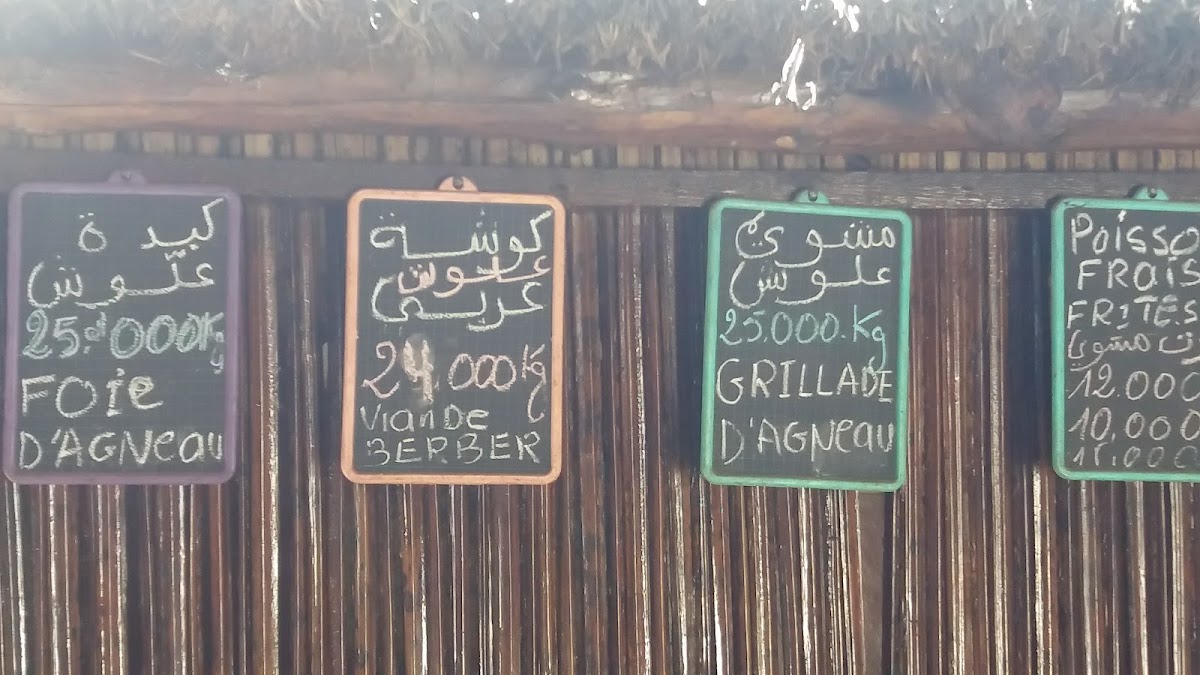 كبدة
علّوش
25.000Kg
FOie
D'AGNeAU
كوشة
علوش
عربي
24.000Kg
ViaNDe
BERBER
مشوي
علوش
25.000.Kg
GRILLADE
D'AGNeAU
Poisso
FRAIS
FRITES
مشوي
12.000
10.000